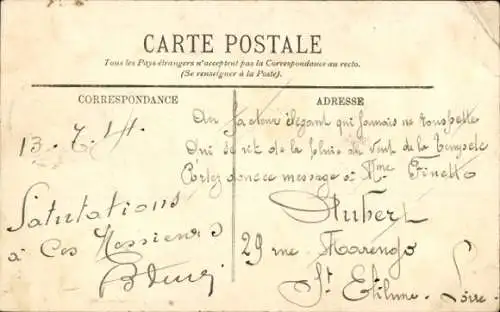 CARTE POSTALE
Tous les Pays étrangers n'acceptent pas la Correspondance au recto.
(Se renseigner à la Poste).
CORRESPONDANCE
13.7.14.
Salutations
à Ces Messieurs
ADRESSE
Au facteur élégant qui jamais ne rouspette
Qui se rit de la pluie du vent de la tempete
Portez donc ce message à Mme Finetto
Hubert
29 rue Marengo
St Etienne Loire